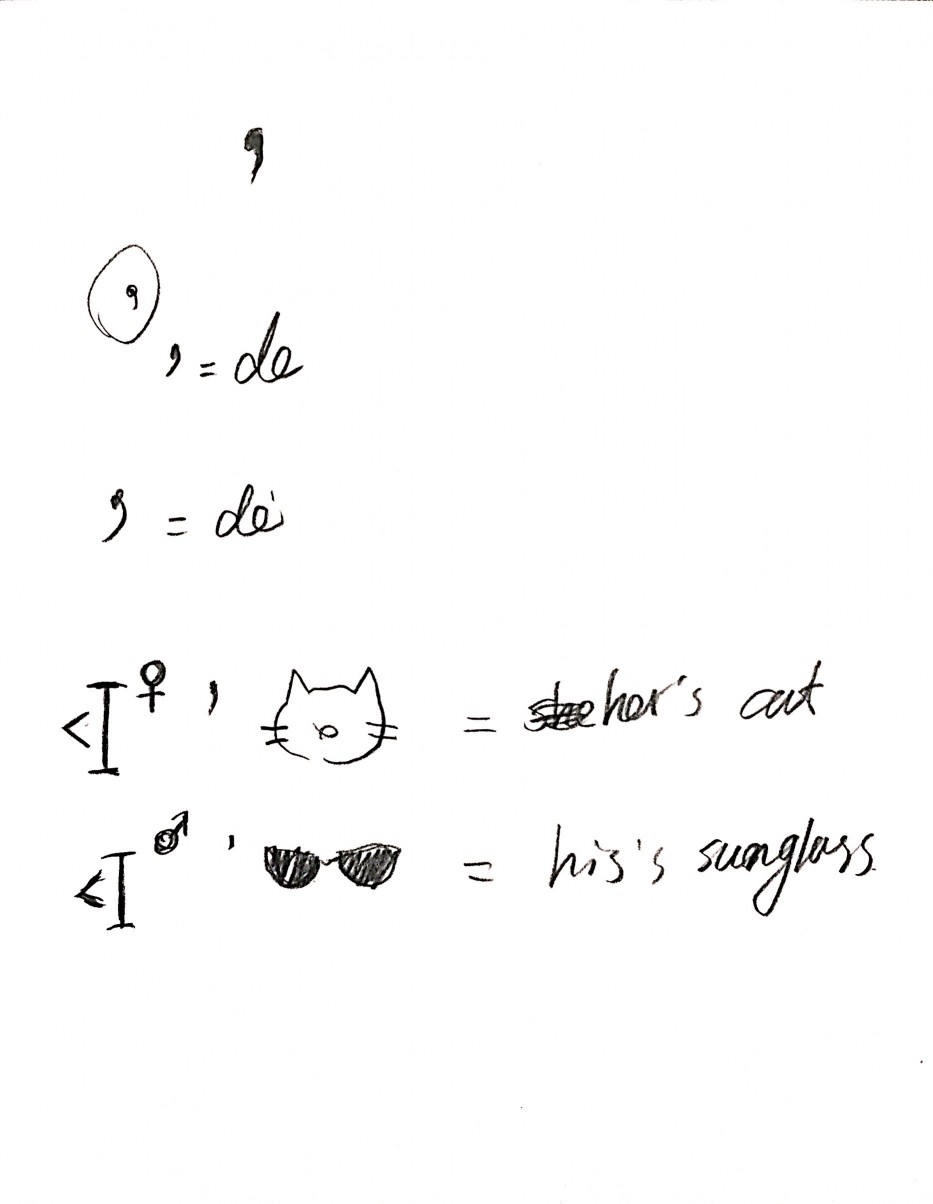 ,
, = de
, = de
<I♀ , = her's cat
<I♂ , = his's sunglass